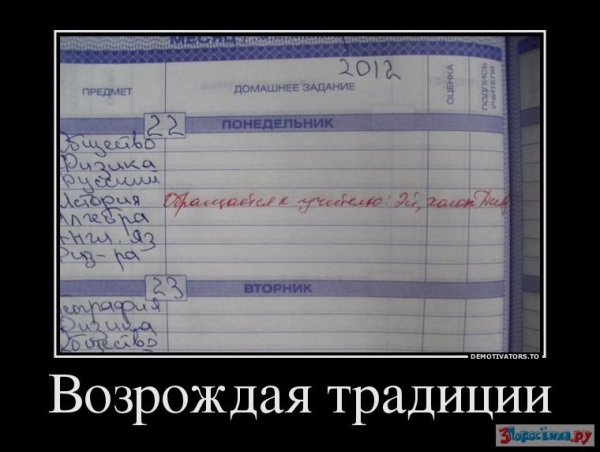 МЕСЯЦ
2012
ПРЕДМЕТ
ДОМАШНЕЕ ЗАДАНИЕ
ОЦЕНКА
ПОДПИСЬ УЧИТЕЛЯ
22
ПОНЕДЕЛЬНИК
Общество
Физика
Русский
История Обращается к учителю: Эй, холоп
Алгебра
Англ. яз
Физ-ра
23
ВТОРНИК
География
Физика
Общество
DEMOTIVATORS.TO
Возрождая традиции
3Поросёнка.ру